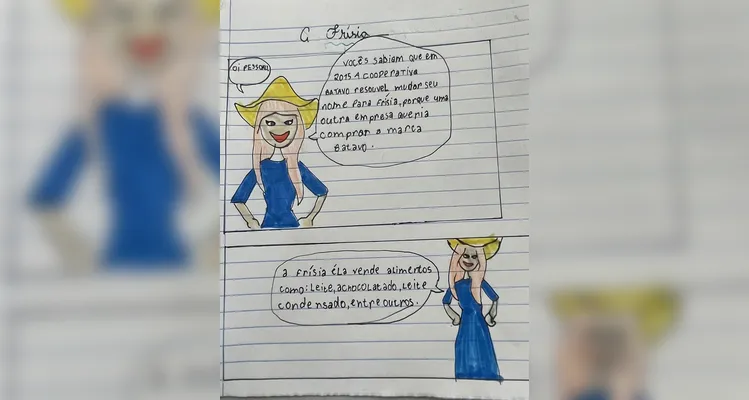 A Frísia
Oi PESSOAL
VOCÊS SabiaM que em
2015 A COOPERATIVA
BATAVO RESOUVEL MUDAR SEU
nome Para Frísia, porque uma
outra empresa queria
comprar a marca
Batavo.
a Frísia éla vende alimentos
como: Leite, achocolatado, Leite
condensado, entre outros.